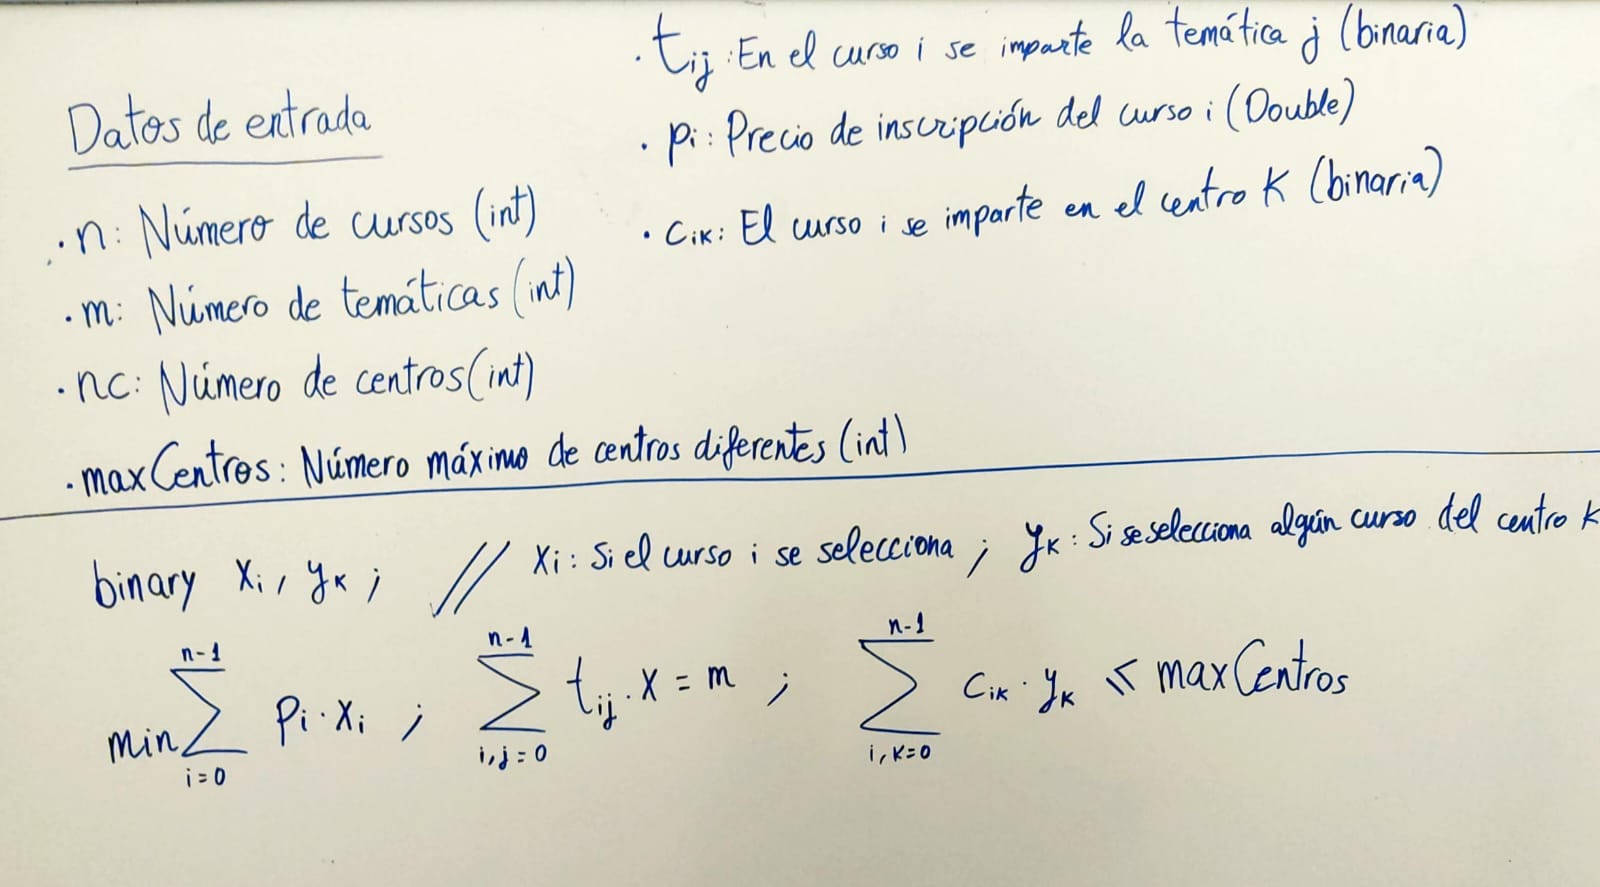 Datos de entrada
· n: Número de cursos (int)
· m: Número de temáticas (int)
· nc: Número de centros (int)
· maxCentros: Número máximo de centros diferentes (int)
· tij: En el curso i se imparte la temática j (binaria)
· pi: Precio de inscripción del curso i (Double)
· cik: El curso i se imparte en el centro K (binaria)
binary xi, yk; // xi: Si el curso i se selecciona; yk: Si se selecciona algún curso del centro K
min ∑_{i=0}^{n-1} pi · xi ; ∑_{i,j=0}^{n-1} tij · x = m ; ∑_{i,k=0}^{n-1} cik · yk ≤ maxCentros